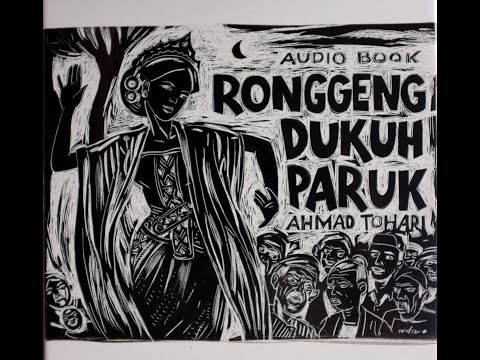 AUDIO BOOK
RONGGENG
DUKUH
PARUK
AHMAD TOHARI